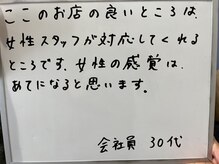 ここのお店の良いところは、
女性スタッフが対応してくれる
ところです。女性の感覚は、
あてになると思います。
会社員 30代